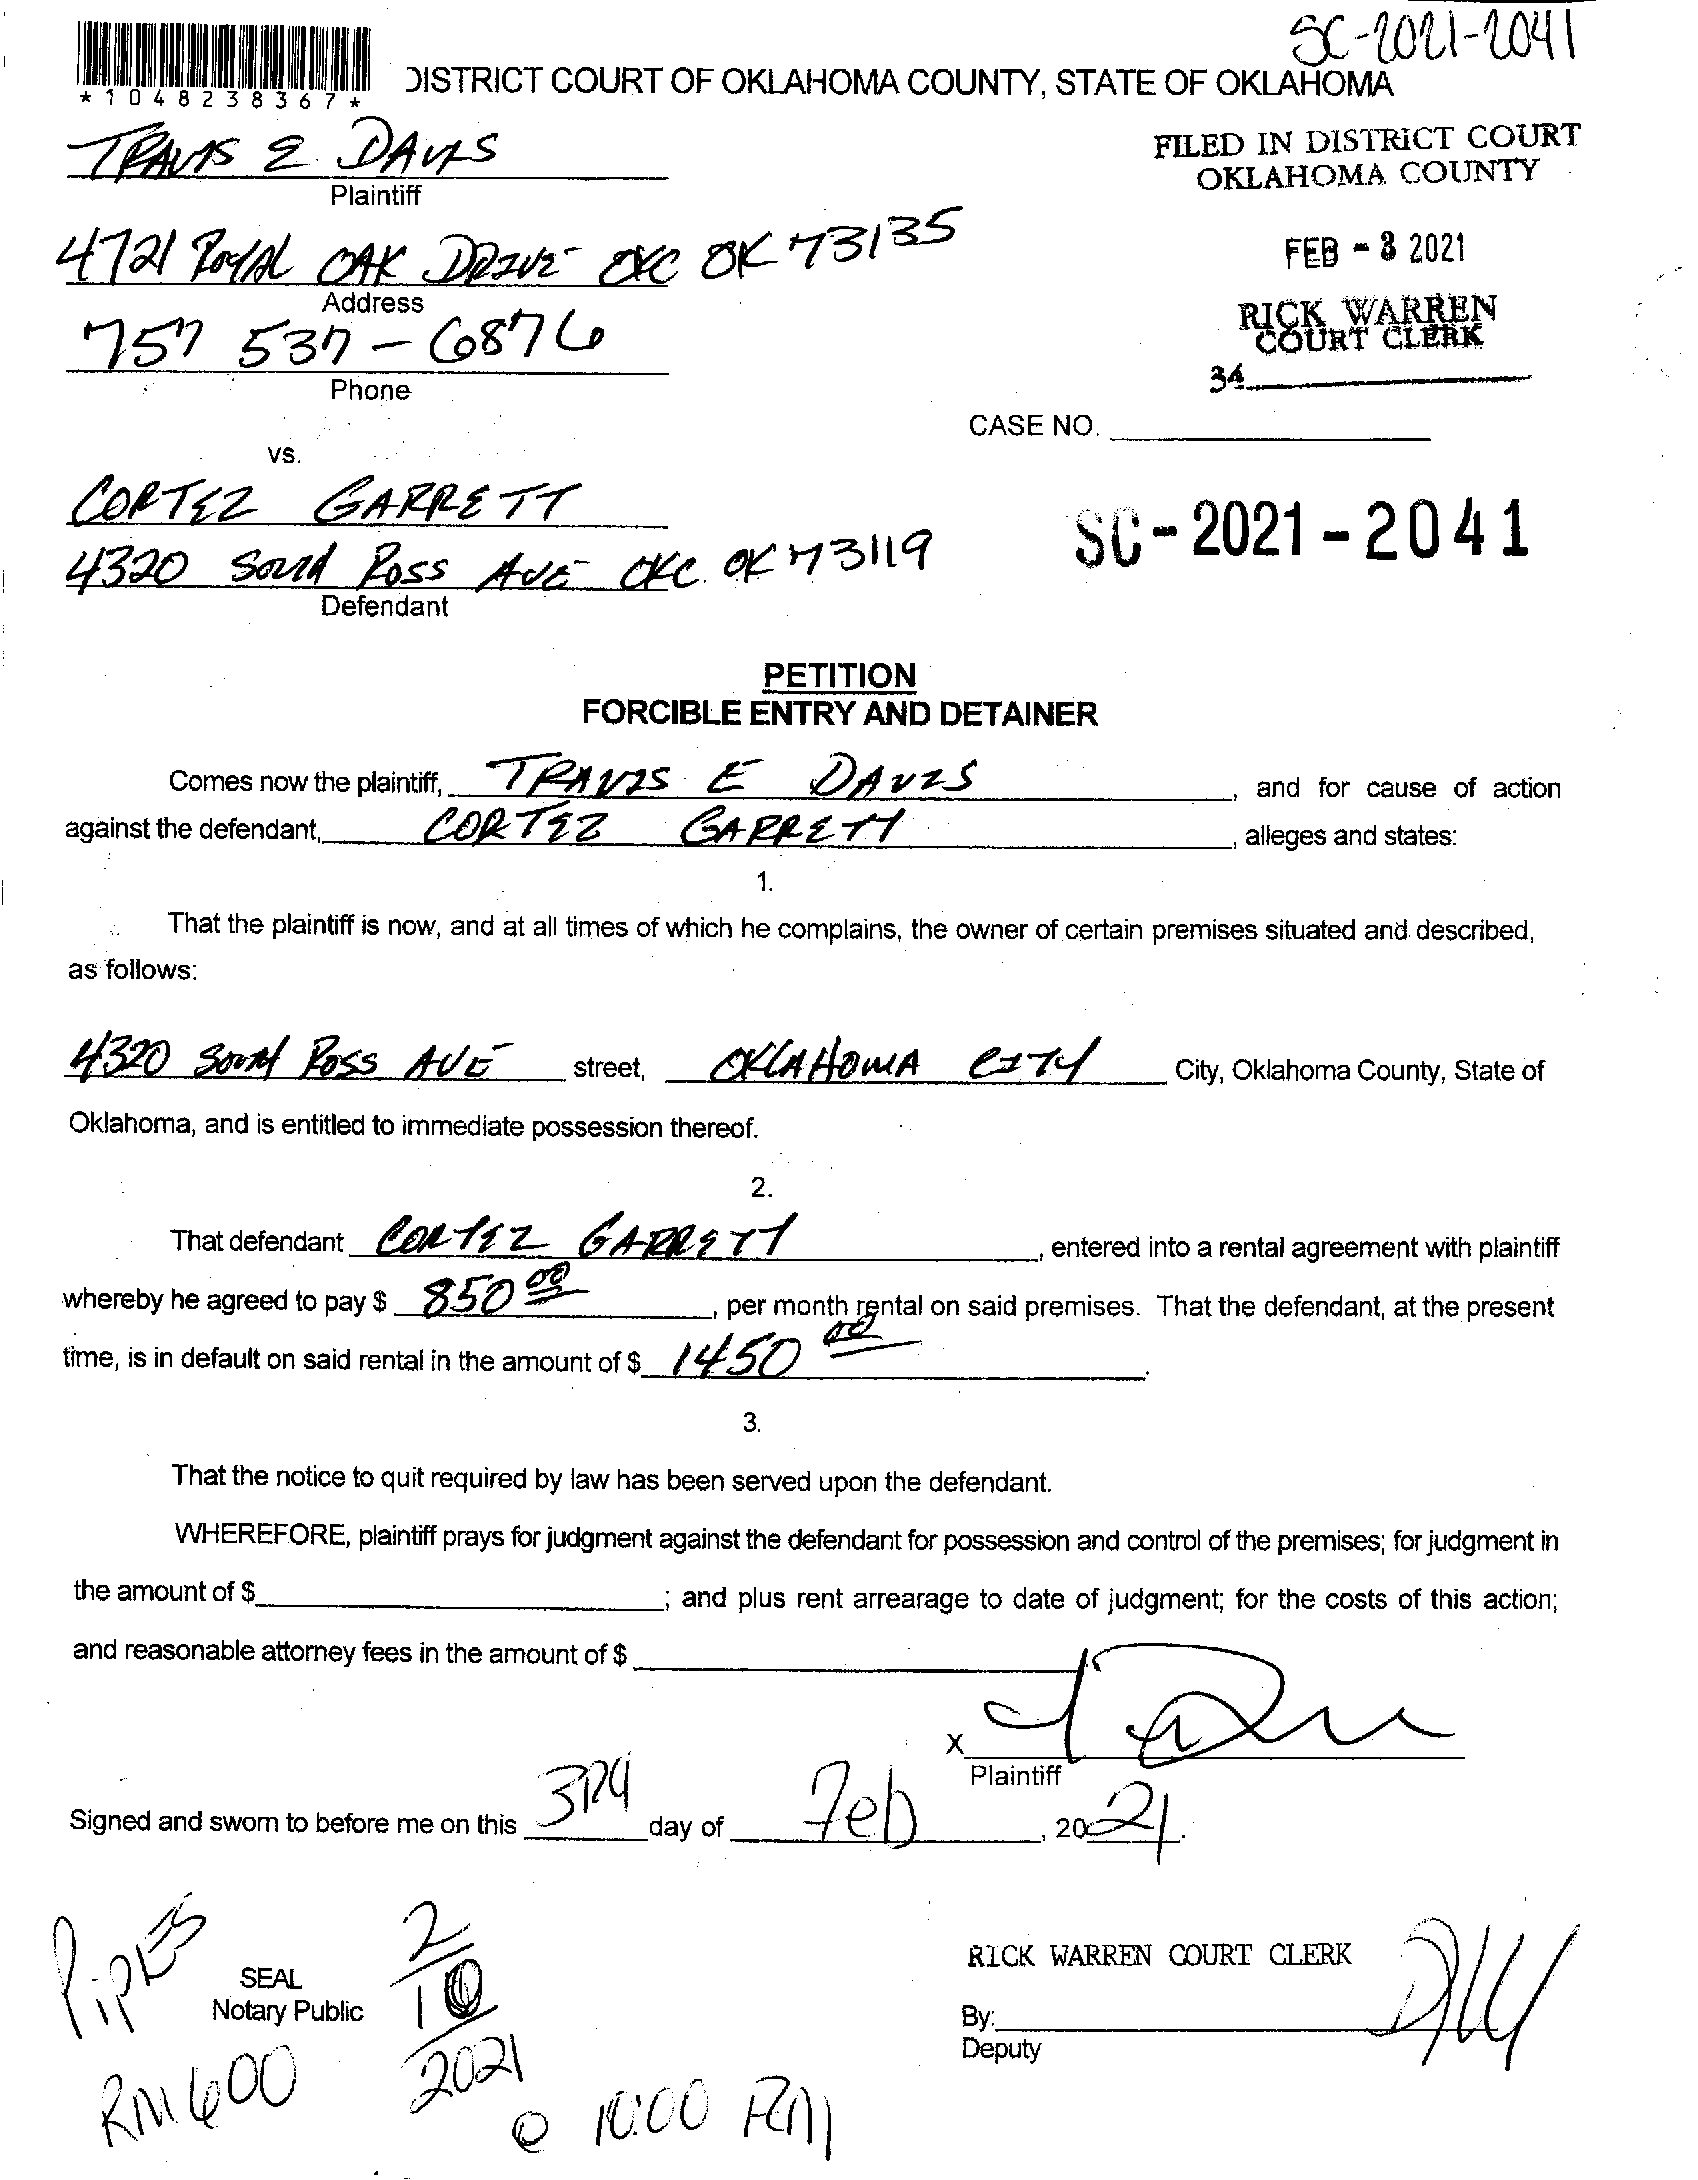 SC-2021-2041
*1048238367*
DISTRICT COURT OF OKLAHOMA COUNTY, STATE OF OKLAHOMA
TRAVIS E. DAVIS
Plaintiff
FILED IN DISTRICT COURT
OKLAHOMA COUNTY
4721 ROYAL OAK DRIVE OKC OK 73135
Address
FEB - 3 2021
757 537-6876
Phone
RICK WARREN
COURT CLERK
34
CASE NO.
vs.
CORTEZ GARRETT
4320 SOUTH ROSS AVE OKC. OK 73119
Defendant
SC-2021-2041
PETITION
FORCIBLE ENTRY AND DETAINER
Comes now the plaintiff, TRAVIS E DAVIS, and for cause of action
against the defendant, CORTEZ GARRETT, alleges and states:
1.
That the plaintiff is now, and at all times of which he complains, the owner of certain premises situated and described,
as follows:
4320 SOUTH ROSS AVE street, OKLAHOMA CITY City, Oklahoma County, State of
Oklahoma, and is entitled to immediate possession thereof.
2.
That defendant CORTEZ GARRETT, entered into a rental agreement with plaintiff
whereby he agreed to pay $ 850 00, per month rental on said premises. That the defendant, at the present
time, is in default on said rental in the amount of $ 1450 00.
3.
That the notice to quit required by law has been served upon the defendant.
WHEREFORE, plaintiff prays for judgment against the defendant for possession and control of the premises; for judgment in
the amount of $ ; and plus rent arrearage to date of judgment; for the costs of this action;
and reasonable attorney fees in the amount of $
X
Plaintiff
Signed and sworn to before me on this 3rd day of Feb, 2021.
PIPES
SEAL
Notary Public
2/10/2021
RM 600
@ 10:00 AM
RICK WARREN COURT CLERK
By:
Deputy